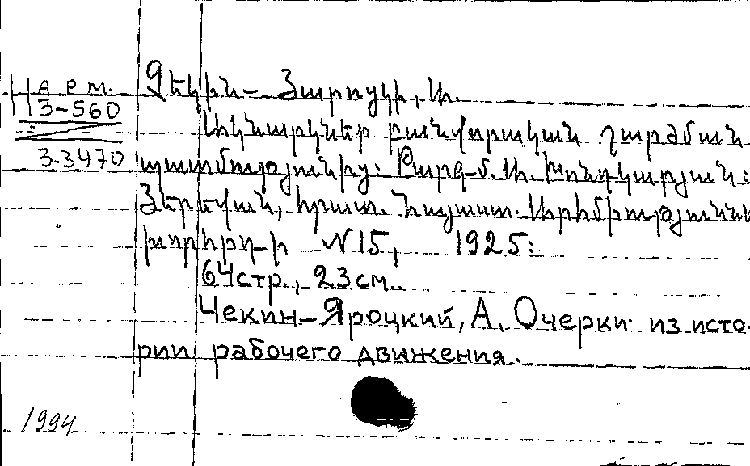 А Р М.
3-560
3-3470
Չեկին-Յարոցկի, Ա.
Ակնարկներ բանվորական շարժման
պատմությունից: Թարգմ. Ա. Խոնդկարյան:
Յերևան, հրատ. Հայաստ. Արհմիությունն
խորհրդ-ի N15, 1925:
64стр., 23см.
Чекин-Яроцкий, А. Очерки из исто-
рии рабочего движения.
1994